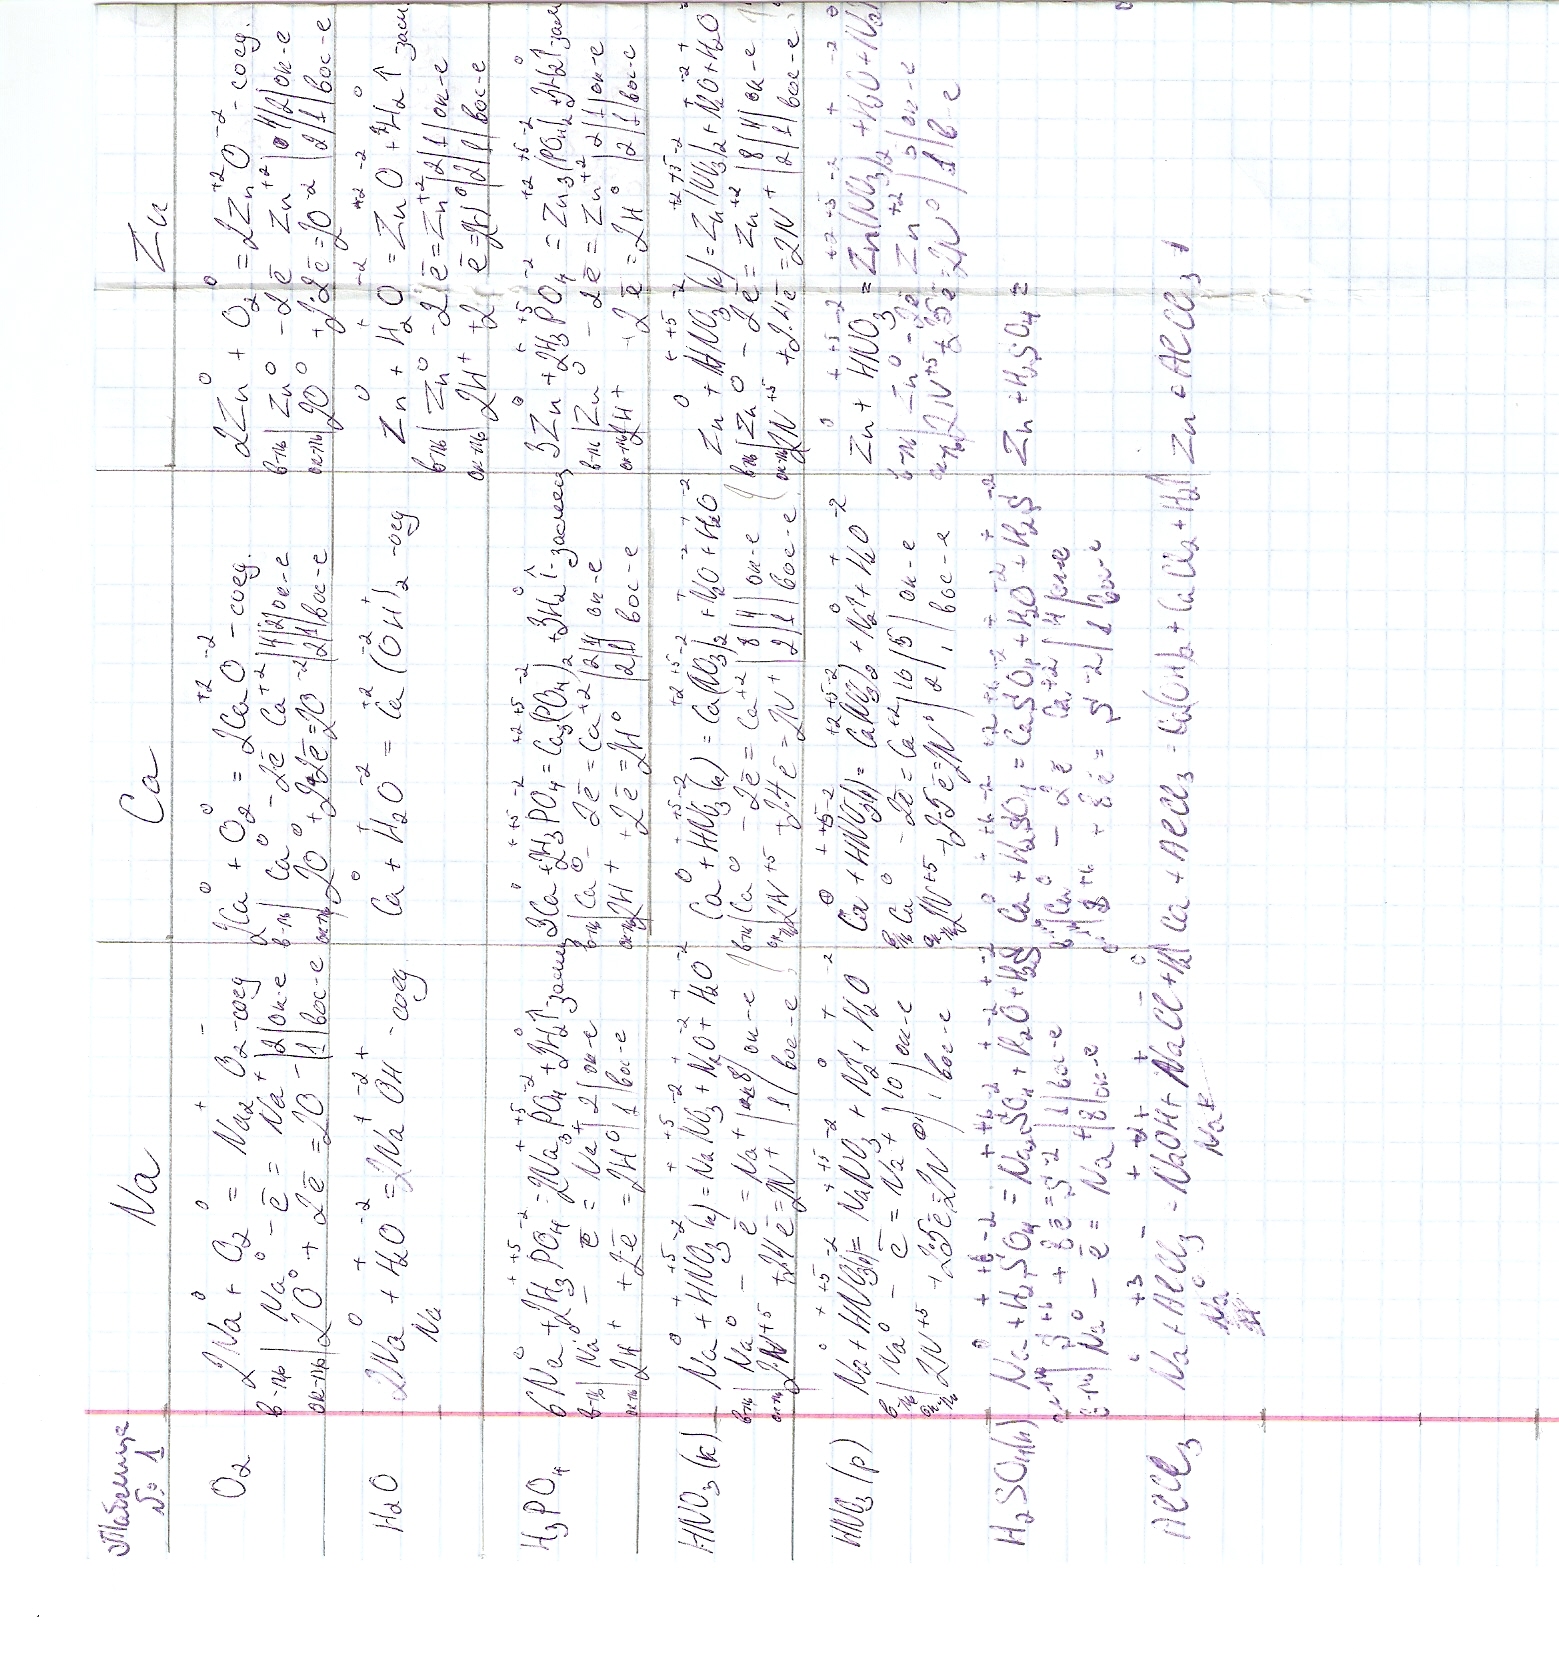 Таблица
№ 1
Na
Ca
Zn
O₂
2Na⁰ + O₂⁰ = Na₂⁺O₂⁻ - соед
в-ль | Na⁰ - ē = Na⁺ | 2 | ок-е
ок-ль | 2O⁰ + 2ē = 2O⁻ | 1 | вос-е
2Ca⁰ + O₂⁰ = 2Ca⁺²O⁻² - соед.
в-ль | Ca⁰ - 2ē Ca⁺² | 4 | 2 | ок-е
ок-ль | 2O⁰ + 2·2ē = 2O⁻² | 2 | 1 | вос-е
2Zn⁰ + O₂⁰ = 2Zn⁺²O⁻² - соед.
в-ль | Zn⁰ - 2ē Zn⁺² | 4 | 2 | ок-е
ок-ль | 2O⁰ + 2·2ē = 2O⁻² | 2 | 1 | вос-е
H₂O
2Na⁰ + H₂⁺O⁻² = 2Na⁺O⁻²H⁺ - соед
Na
Ca⁰ + H₂⁺O⁻² = Ca⁺²(O⁻²H⁺)₂ - соед
Zn⁰ + H₂⁺O⁻² = Zn⁺²O⁻² + H₂⁰↑ зам
в-ль | Zn⁰ - 2ē = Zn⁺² | 2 | 1 | ок-е
ок-ль | 2H⁺ + 2ē = 2H⁰ | 2 | 1 | вос-е
H₃PO₄
6Na⁰ + 2H₃⁺P⁺⁵O₄⁻² = 2Na₃⁺P⁺⁵O₄⁻² + 3H₂⁰↑ замещ
в-ль | Na⁰ - ē = Na⁺ | 2 | ок-е
ок-ль | 2H⁺ + 2ē = 2H⁰ | 1 | вос-е
3Ca⁰ + 2H₃⁺P⁺⁵O₄⁻² = Ca₃⁺²(P⁺⁵O₄⁻²)₂ + 3H₂⁰↑ - замещ
в-ль | Ca⁰ - 2ē = Ca⁺² | 2 | 1 ок-е
ок-ль | 2H⁺ + 2ē = 2H⁰ | 2 | 1 | вос-е
3Zn⁰ + 2H₃⁺P⁺⁵O₄⁻² = Zn₃⁺²(P⁺⁵O₄⁻²)₂ + 3H₂⁰↑ зам
в-ль | Zn⁰ - 2ē = Zn⁺² | 2 | 1 | ок-е
ок-ль | 2H⁺ + 2ē = 2H⁰ | 2 | 1 | вос-е
HNO₃(к)
Na⁰ + H⁺N⁺⁵O₃⁻²(к) = Na⁺N⁺⁵O₃⁻² + N₂⁺O⁻² + H₂⁺O⁻²
в-ль | Na⁰ - ē = Na⁺ | 8 | ок-е
ок-ль | 2N⁺⁵ + 2·4ē = 2N⁺ | 1 | вос-е
Ca⁰ + H⁺N⁺⁵O₃⁻²(к) = Ca⁺²(N⁺⁵O₃⁻²)₂ + N₂⁺O⁻² + H₂⁺O⁻²
в-ль | Ca⁰ - 2ē = Ca⁺² | 8 | 4 | ок-е
ок-ль | 2N⁺⁵ + 2·4ē = 2N⁺ | 2 | 1 | вос-е
Zn⁰ + H⁺N⁺⁵O₃⁻²(к) = Zn⁺²(N⁺⁵O₃⁻²)₂ + N₂⁺O⁻² + H₂⁺O
в-ль | Zn⁰ - 2ē = Zn⁺² | 8 | 4 | ок-е
ок-ль | 2N⁺⁵ + 2·4ē = 2N⁺ | 2 | 1 | вос-е
HNO₃(р)
Na⁰ + H⁺N⁺⁵O₃⁻²(р) = Na⁺N⁺⁵O₃⁻² + N₂⁰↑ + H₂⁺O⁻²
в-ль | Na⁰ - ē = Na⁺ | 10 | ок-е
ок-ль | 2N⁺⁵ + 2·5ē = 2N⁰ | 1 | вос-е
Ca⁰ + H⁺N⁺⁵O₃⁻²(р) = Ca⁺²(N⁺⁵O₃⁻²)₂ + N₂⁰↑ + H₂⁺O⁻²
в-ль | Ca⁰ - 2ē = Ca⁺² | 10 | 5 | ок-е
ок-ль | 2N⁺⁵ + 2·5ē = 2N⁰ | 2 | 1 | вос-е
Zn⁰ + H⁺N⁺⁵O₃⁻² = Zn⁺²(N⁺⁵O₃⁻²)₂ + H₂⁺O⁻² + N₂⁰
в-ль | Zn⁰ - 2ē Zn⁺² | 5 | ок-е
ок-ль | 2N⁺⁵ + 2·5ē = 2N⁰ | 1 | в-е
H₂SO₄(к)
Na⁰ + H₂⁺S⁺⁶O₄⁻² = Na₂⁺S⁺⁶O₄⁻² + H₂⁺O⁻² + H₂⁺S⁻²
ок-ль | S⁺⁶ + 8ē = S⁻² | 1 | вос-е
в-ль | Na⁰ - ē = Na⁺ | 8 | ок-е
Ca⁰ + H₂⁺S⁺⁶O₄⁻² = Ca⁺²S⁺⁶O₄⁻² + H₂⁺O⁻² + H₂⁺S⁻²
в-ль | Ca⁰ - 2ē Ca⁺² | 4 | ок-е
S⁺⁶ + 8ē = S⁻² | 1 | вос-е
Zn + H₂SO₄ =
AlCl₃
Na⁰ + Al⁺³Cl₃⁻ = NaOH + NaCl + H₂⁰
Na Na
Ca + AlCl₃ = Ca(OH)₂ + CaCl₂ + H₂↑
Zn + AlCl₃